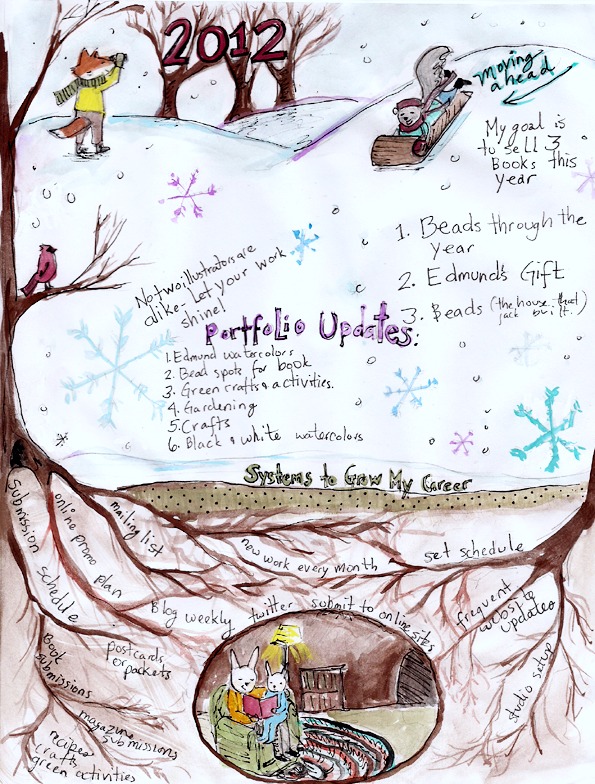 2012
Moving
ahead
My goal is
to sell 3
Books this
year
1. Beads through the
year
2. Edmund's Gift
3. Beads (the house that
jack built.)
No two illustrators are
alike - Let your work
shine!
Portfolio Updates:
1. Edmund watercolors
2. Bead spots for book
3. Green crafts & activities.
4. Gardening
5. Crafts
6. Black & white watercolors
Systems to Grow My Career
Submission schedule
online promo plan
mailing list
new work every month
set schedule
Blog weekly
twitter
submit to online sites
frequent
website
updates
studio setup
postcards
or packets
Book
submissions
magazine
submissions
recipes
crafts
green activities